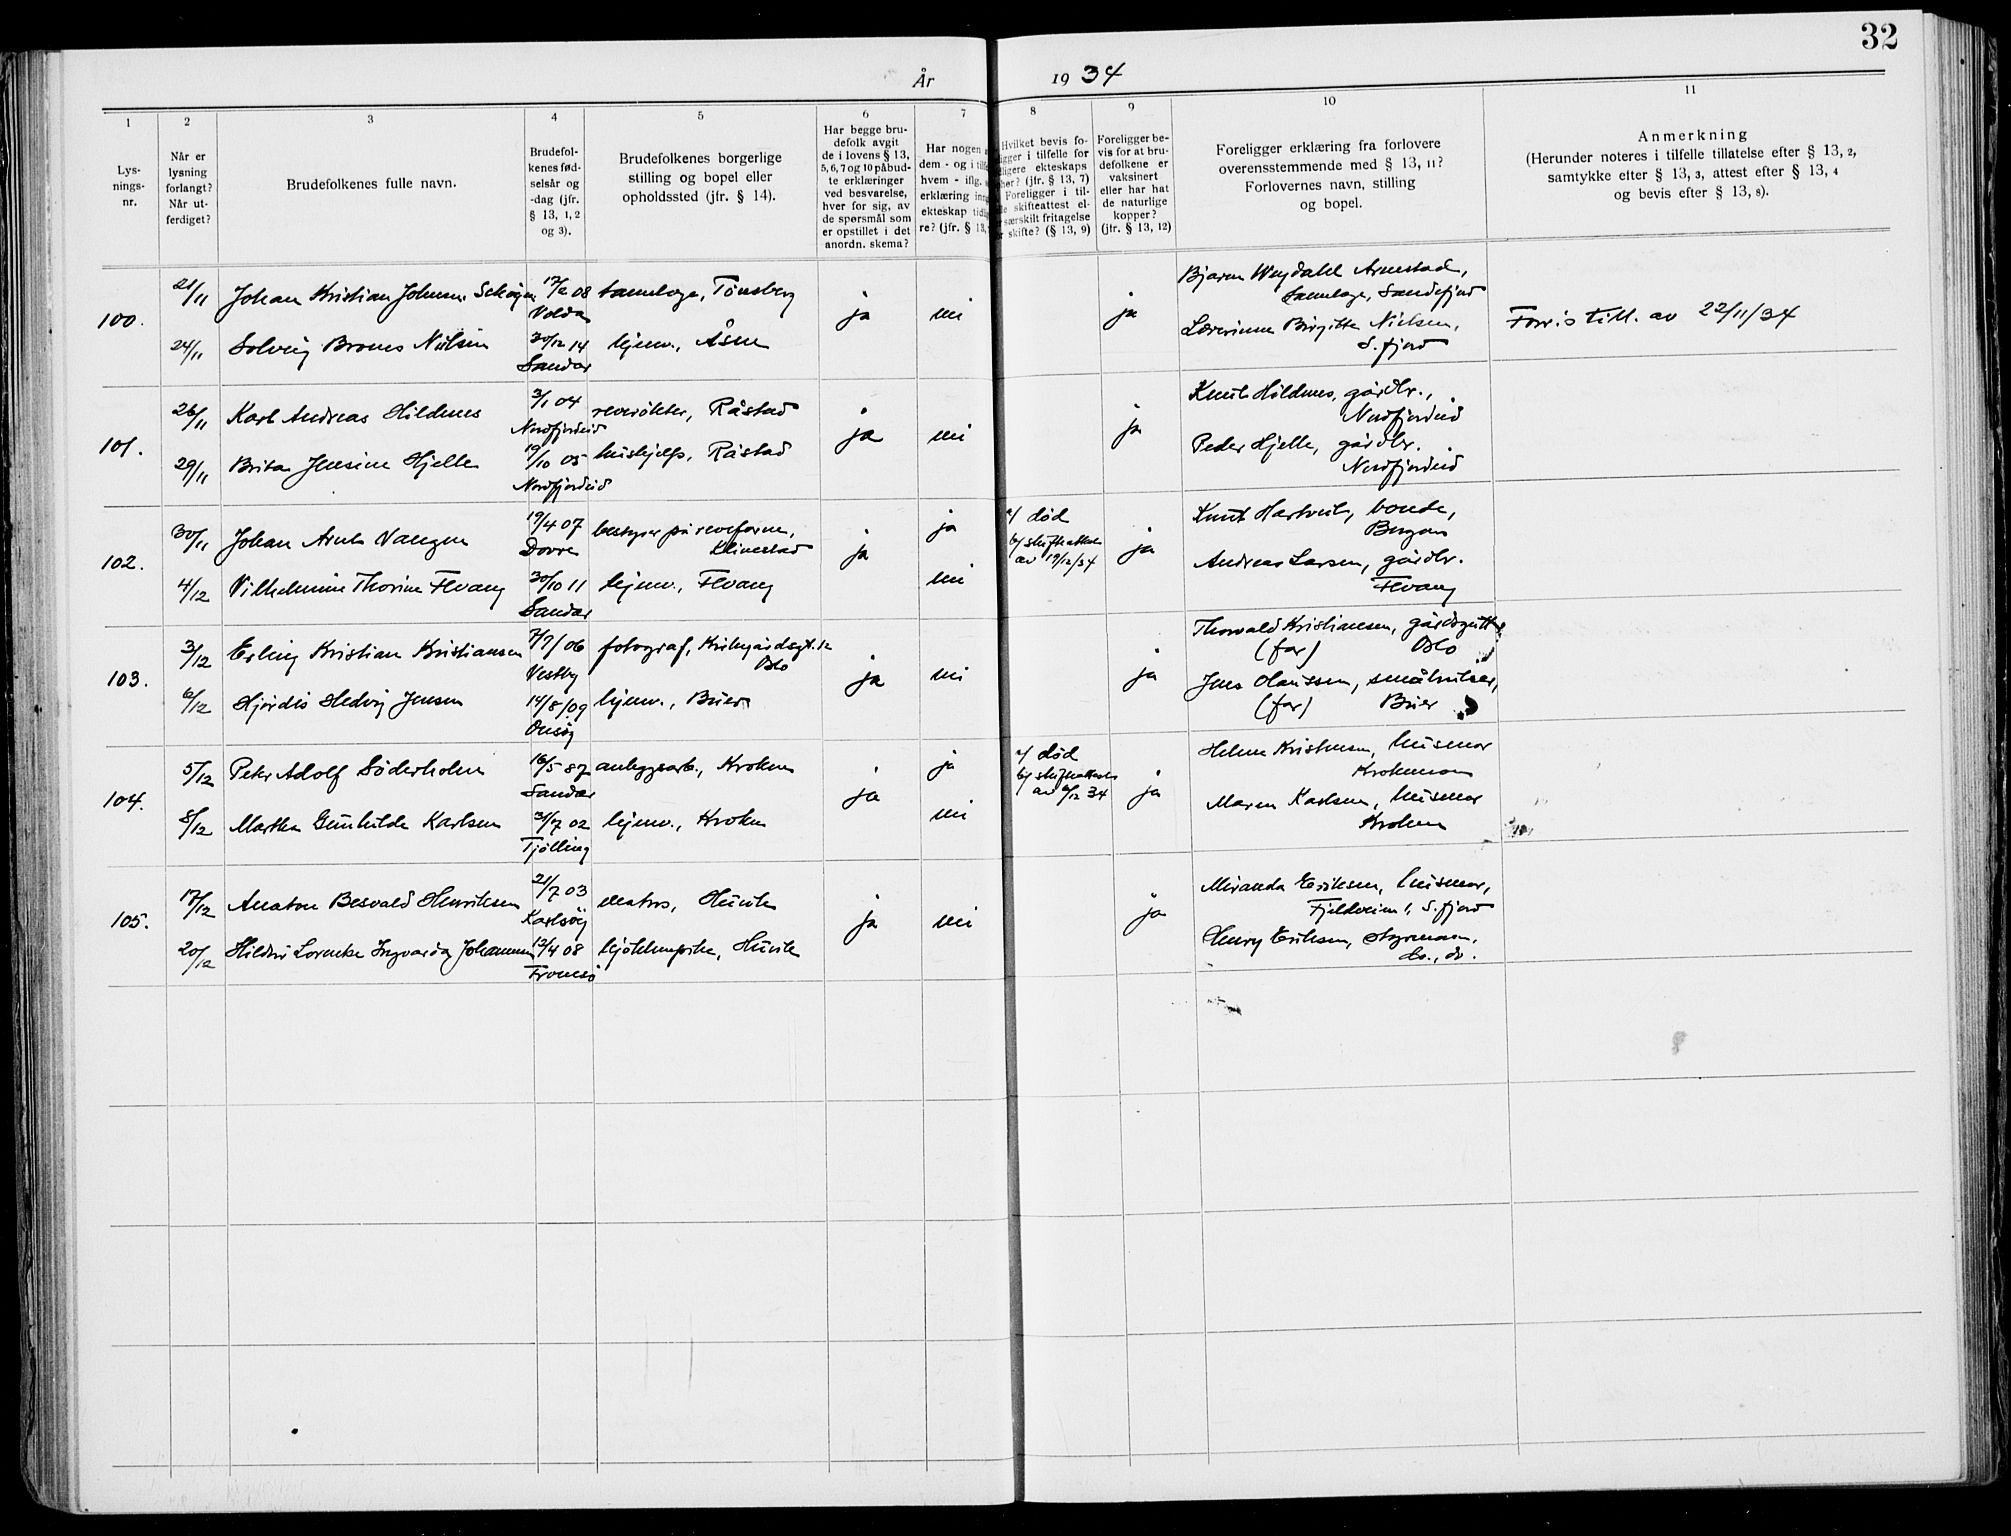 32
År 1934
1
2
3
4
5
6
7
8
9
10
11
Lys-
nings-
nr.
Når er
lysning
forlangt?
Når ut-
ferdiget?
Brudefolkenes fulle navn.
Brudefol-
kenes fød-
selsår og
-dag (jfr.
§ 13, 1, 2
og 3).
Brudefolkenes borgerlige
stilling og bopel eller
opholdssted (jfr. § 14).
Har begge bru-
defolk avgit
de i lovens § 13,
5, 6, 7 og 10 påbud-
te erklæringer
ved besvarelse,
hver for sig, av
de spørsmål som
er opstillet i det
anordn. skema?
Har nogen
dem - og i
hvem - iflg.
erklæring
ekteskap
re? (jfr. § 13,
Hvilket bevis fo-
i tilfelle for
ekteskaps
(jfr. § 13, 7)
Foreligger i til-
skifteattest el-
særskilt fritagelse
skifte? (§ 13, 9)
Foreligger be-
vis for at bru-
defolkene er
vaksinert
eller har hat
de naturlige
kopper?
(jfr. § 13, 12)
Foreligger erklæring fra forlovere
overensstemmende med § 13, 11?
Forlovernes navn, stilling
og bopel.
Anmerkning
(Herunder noteres i tilfelle tillatelse efter § 13, 2,
samtykke efter § 13, 3, attest efter § 13, 4
og bevis efter § 13, 8).
100. 21/11 Johan Kristian Johnsen 17/2 08 tannlæge, Tönsberg ja nei ja Bjarne Arnestad,
Volda tannlæge, Sandefjord
24/11 Solveig Nielsen 30/12 14 hjemv., Åsen Lærerinne Birgitte Nielsen,
Sandar S.fjord
till. av 22/11/34
101. 26/11 Karl Andreas Hildenes 3/1 04 reverökter, Råstad ja nei ja Knut Hildenes, gårdbr.,
Nordfjordeid Nordfjordeid
29/11 Brita Jensine Hjelle 19/10 05 hushjelp, Råstad Peder Hjelle, gårdbr.
Nordfjordeid Nordfjordeid
102. 30/11 Johan Arnt Vangen 19/4 07 bestyrer på revefarm, ja ja a/ död ja Knut, bonde,
Dovre Klinestad b/ skifteattest
av 19/12/34
4/12 Vilhelmine Thorine Hvang 30/10 11 hjemv., nei Andreas Larsen, gårdbr.
Sandar
103. 3/12 Erling Kristian Kristiansen 7/7/06 fotograf, Kirkegårdsgt. 12 ja nei ja Thorvald Kristiansen, gårdsgutt
Vestby Oslo (far) Oslo
6/12 Hjördis Hedvig Jensen 14/8/09 hjemv., Buer Jens Olaussen, småbruker,
Onsöy (far) Buer
104. 5/12 Peter Adolf Söderholm 16/5 87 anleggsarb., Kroken ja ja a/ död ja Helene Kristensen, husmor
Sandar b/ skifteattest Krokemoen
av 6/12 34
8/12 Martha Gunhilde Karlsen 31/7 02 hjemv., Kroken nei Maren Karlsen, husmor
Tjölling Kroken
105. 17/12 Anaton Besvald Henriksen 21/7 03 matros, Huvik ja nei ja Miranda Eriksen, husmor,
Karlsöy Fjeldveien 1, S.fjord
20/12 Hildur Lorentse Johannessen 12/4 08 kjökkenpike, Huvik Henry Eriksen, styrmann,
Tromsö do., do.